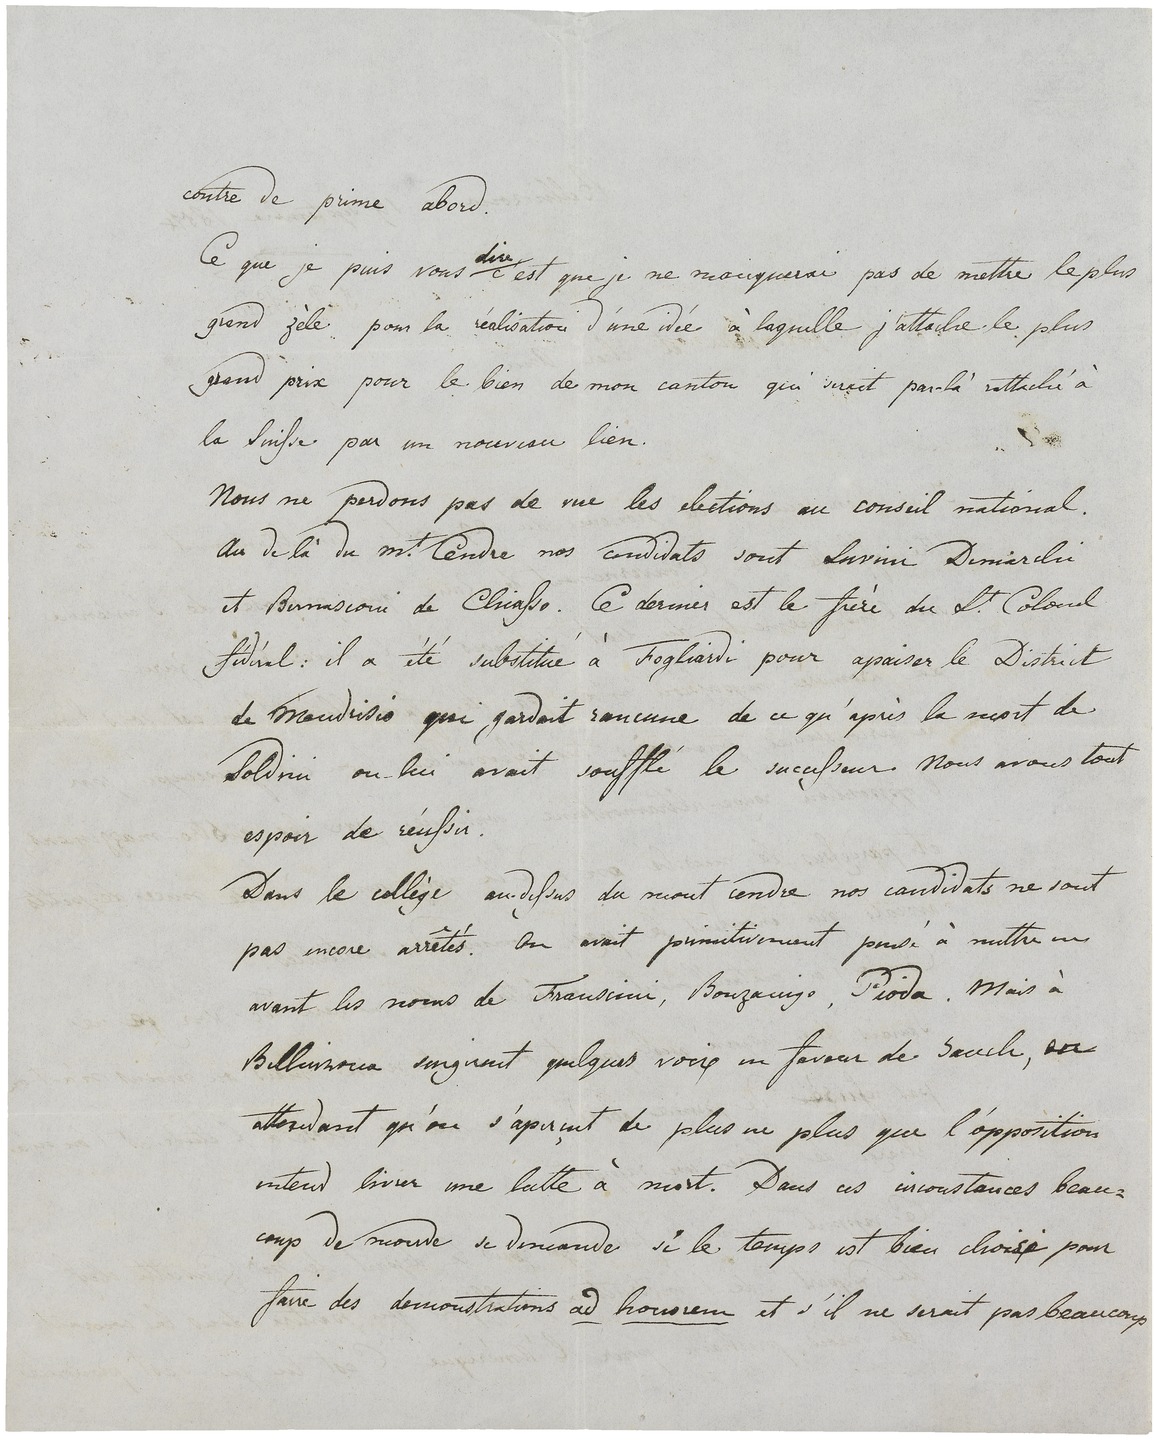 contre de prime abord.
Ce que je puis vous dire c'est que je ne manquerai pas de mettre le plus
grand zèle pour la réalisation d'une idée à laquelle j'attache le plus
grand prix pour le bien de mon canton qui serait par-là rattaché à
la Suisse par un nouveau lien.
Nous ne perdons pas de vue les elections au conseil national.
Au de là du Mt. Cendre nos candidats sont Luvini Demarchi
et Bernasconi de Chiasso. Ce dernier est le frère du Lt. Colonel
fédéral: il a été substitué à Fogliardi pour apaiser le District
de Mendrisio qui gardait rancune de ce qu'après la mort de
Soldini on lui avait soufflé le successeur. Nous avons tout
espoir de réussir.
Dans le collège au-dessus du mont cendre nos candidats ne sont
pas encore arrêtés. On avait primitivement pensé à mettre en
avant les noms de Franscini, Bonzanigo, Pioda. Mais à
Bellinzona surgirent quelques voix en faveur de Jauch, en
attendant qu'on s'aperçut de plus en plus que l'opposition
entend livrer une lutte à mort. Dans ces circonstances beau=
coup de monde se demande si le temps est bien choisi pour
faire des demonstrations ad honorem et s'il ne serait pas beaucoup